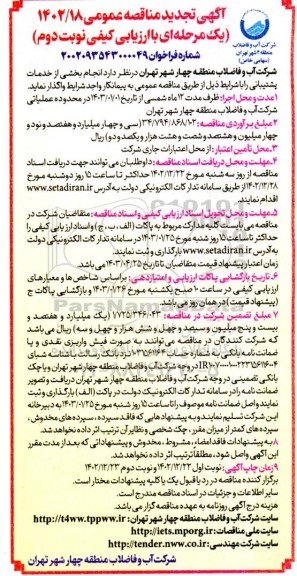 آگهی تجدید مناقصه عمومی ۱۴۰۲/۱۸
(یک مرحله‌ای با ارزیابی کیفی نوبت دوم)
شماره فراخوان ۲۰۰۲۰۹۳۵۴۳۰۰۰۰۴۹
شرکت آب و فاضلاب
منطقه ۴ شهر تهران
(سهامی خاص)
شرکت آب و فاضلاب منطقه چهار شهر تهران در نظر دارد انجام بخشی از خدمات
پشتیبانی را با شرایط ذیل از طریق مناقصه عمومی به پیمانکار واجد شرایط واگذار نماید.
۱-مدت و محل اجرا: ظرف مدت ۱۲ ماه شمسی از تاریخ ۱۴۰۳/۰۱/۰۱ در محدوده عملیاتی
شرکت آب و فاضلاب منطقه چهار شهر تهران
۲-مبلغ برآوردی مناقصه: ۳۴/۷۹۴/۸۶۸/۱۰۲ (سی و چهار میلیارد و هفتصد و نود و
چهار میلیون و هشتصد و شصت و هشت هزار و یکصد و دو) ریال
۳-محل تأمین اعتبار: از محل اعتبارات جاری شرکت
۴-مهلت و محل دریافت اسناد مناقصه: داوطلبان می توانند جهت دریافت اسناد
مناقصه از روز سه شنبه مورخ ۱۴۰۲/۱۲/۲۲ حداکثر تا ساعت ۱۵ روز دوشنبه مورخ
۱۴۰۲/۱۲/۲۸ از طریق سامانه تدارکات الکترونیکی دولت به آدرس www.setadiran.ir
اقدام نمایند.
۵-مهلت و محل تحویل اسناد ارزیابی کیفی و اسناد مناقصه: متقاضیان شرکت در
مناقصه می بایست کلیه مدارک مربوط به پاکات (الف، ب، ج) و اسناد ارزیابی کیفی را
حداکثر تا ساعت ۱۵ روز شنبه مورخ ۱۴۰۳/۰۱/۲۵ در سامانه تدارکات الکترونیکی دولت
به آدرس www.setadiran.ir بارگذاری و ثبت نمایند.
زمان اعتبار پیشنهاد قیمت متقاضیان تا تاریخ ۱۴۰۳/۰۴/۲۵ می باشد.
۶-تاریخ بازگشایی پاکات ارزیابی و اعتباردهی: بر اساس شاخص ها و معیارهای
ارزیابی کیفی در ساعت ۱۰ صبح یکشنبه مورخ ۱۴۰۳/۰۱/۲۶ و بازگشایی پاکات ج
(پیشنهاد قیمت) در همان روز می باشد.
۷-مبلغ تضمین شرکت در مناقصه: ۱/۷۲۵/۳۴۶/۰۴۳ (یک میلیارد و هفتصد و
بیست و پنج میلیون و سیصد و چهل و شش هزار و چهل و سه) ریال می باشد
که شرکت کنندگان در مناقصه می توانند به صورت فیش واریزی نقدی و یا
در وجه شرکت آب و فاضلاب منطقه چهار شهر تهران و یا چک
بانکی تضمینی در وجه شرکت آب و فاضلاب منطقه چهار شهر تهران دریافت و تصویر
ضمانت نامه را در سامانه تدارکات الکترونیکی دولت در پاکت (الف) بارگذاری و ثبت
نمایند و اصل ضمانت نامه موصوف را تا ساعت ۱۵ روز شنبه مورخ ۱۴۰۳/۰۱/۲۵ به دبیرخانه
این شرکت تسلیم نمایند و به پیشنهادهایی که فاقد سپرده، سپرده های مخدوش،
سپرده های کمتر از میزان مقرر، چک شخصی و نظایر آن ترتیب اثر داده نخواهد شد.
۸-به پیشنهادات فاقد امضاء، مشروط، مخدوش و پیشنهاداتی که بعد از مدت مقرر
این آگهی واصل شود، مطلقا ترتیب اثر داده نخواهد شد.
۹-زمان چاپ آگهی: نوبت اول ۱۴۰۲/۱۲/۲۲ و نوبت دوم ۱۴۰۲/۱۲/۲۳
برگزار کننده مناقصه در رد یا قبول یک یا کلیه پیشنهادات مختار است.
سایر اطلاعات و جزئیات در اسناد مناقصه مندرج است.
هزینه درج آگهی روزنامه به عهده مناقصه گزار می باشد.
سایت شرکت آب و فاضلاب منطقه چهار شهر تهران: http://t4ww.tppww.ir
سایت ملی مناقصات: http://iets.mporg.ir
سایت شرکت مهندسی: http://tender.nww.co.ir
شرکت آب و فاضلاب منطقه چهار شهر تهران